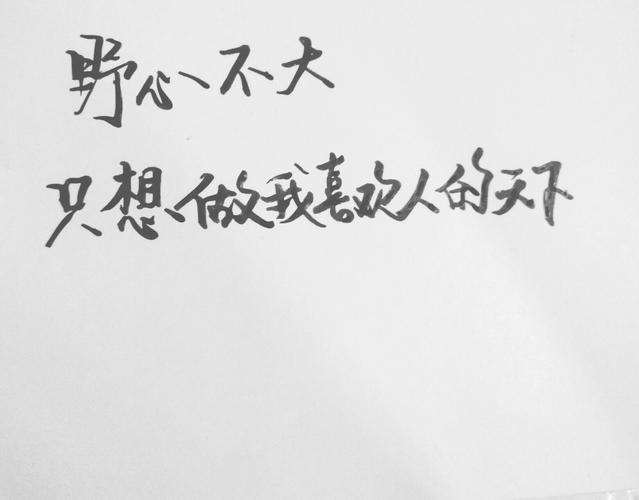 野心不大
只想做我喜欢人的天下